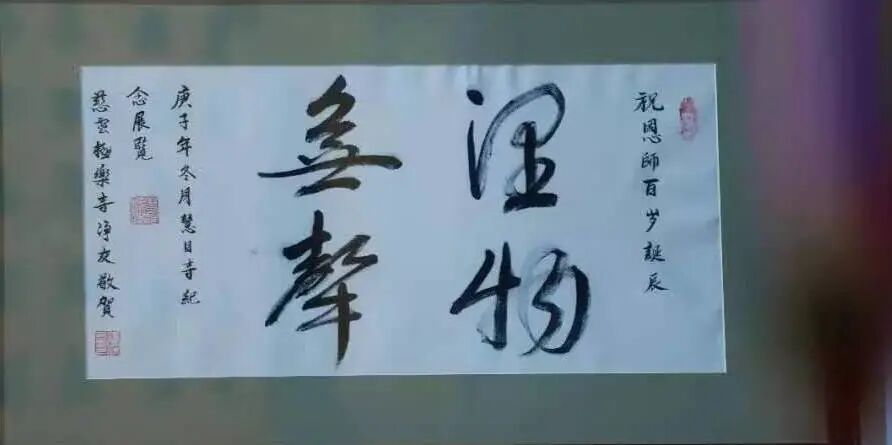 祝恩師百岁誕辰
潤物
無聲
庚子年冬月慧目寺紀
念展覽
慈雲極樂寺淨友敬賀